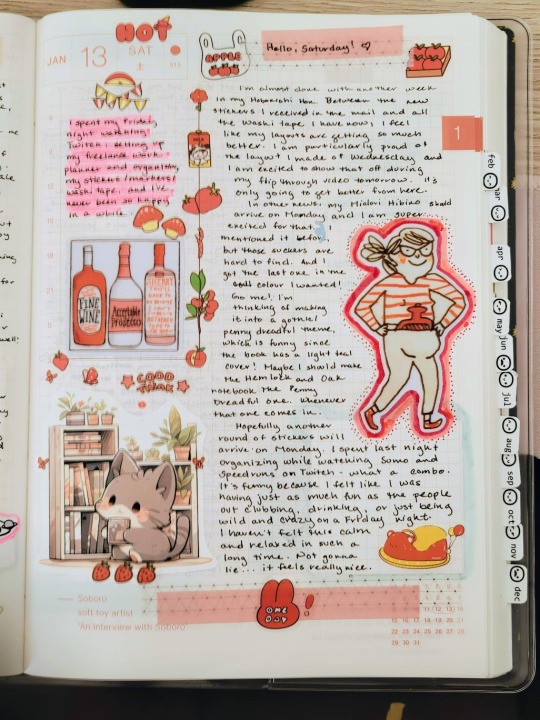 HOT
JAN 13 SAT
土
APPLE
Hello, Saturday! ♡
I spent my Friday
night watching
Twitch, setting up
my freelance work
planner and organizing
my stickers/markers/
washi tape, and I've
never been so happy
in a while.
I'm almost done with another week
in my Hobonichi Hon. Between the new
stickers I received in the mail and all
the washi tape I have now, I feel
like my layouts are getting so much
better. I am particularly proud of
the layout I made of Wednesday and
I am excited to show that off during
my flip through video tomorrow. It's
only going to get better from here.
In other news, my Midori Hibino should
arrive on Monday and I am super
excited for that
mentioned it before
but those suckers are
hard to find. And I
got the last one in the
colour I wanted!
Go me! I'm
thinking of making
it into a gothic/
penny dreadful theme,
which is funny since
the book has a light teal
cover! Maybe I should make
the Hemlock and Oak
notebook the Penny
Dreadful one. Whenever
that one comes in.
Hopefully another
round of stickers will
arrive on Monday. I spent last night
organizing while watching Sumo and
Speedruns on Twitch - what a combo.
It's funny because I felt like I was
having just as much fun as the people
out clubbing, drinking, or just being
wild and crazy on a Friday night.
I haven't felt this calm
and relaxed in such a
long time. Not gonna
lie... it feels really nice.
FINE
WINE
Acceptable
Prosecco
GOOD
THAK
1
feb
mar
apr
may
jun
jul
aug
sep
oct
nov
dec
Soboro
soft toy artist
"An interview with Soboro"
ONE
DAY
!
11 12 13
15 16 17 18 19 20
22 23 24 25 26 27
29 30 31